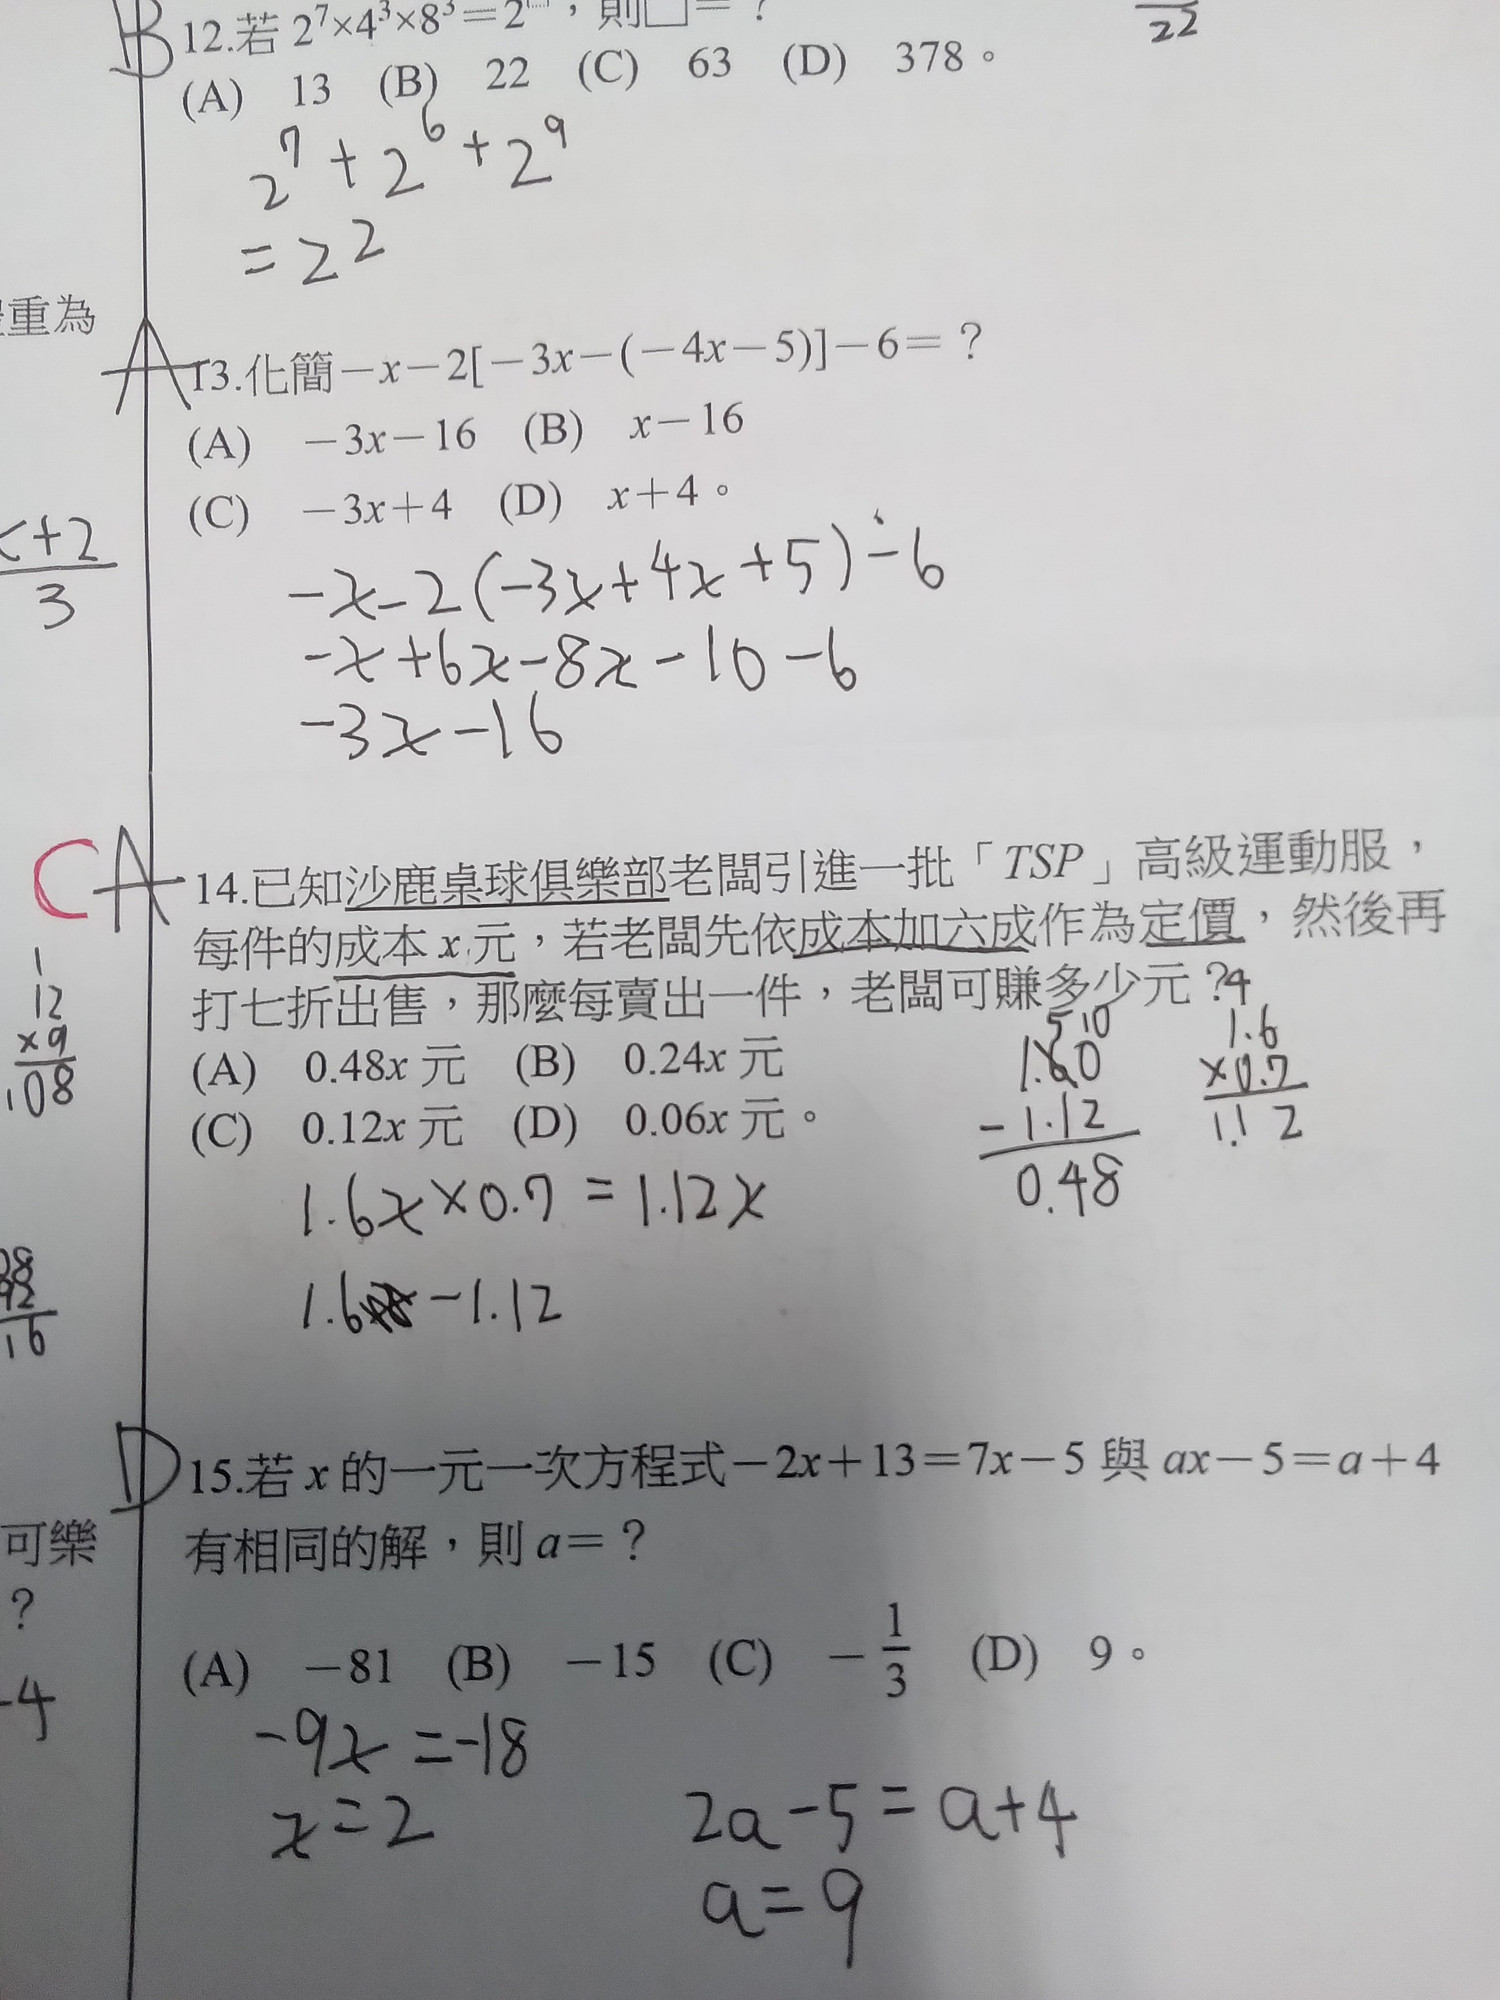 B
12.若 2⁷×4³×8³=2□，則□=？
22
(A) 13 (B) 22 (C) 63 (D) 378。
2⁷+2⁶+2⁹
=22
重為
A
13.化簡－x－2[－3x－(－4x－5)]－6=？
(A) －3x－16 (B) x－16
(C) －3x+4 (D) x+4。
x+2
3
-x-2(-3x+4x+5)-6
-x+6x-8x-10-6
-3x-16
C A
14.已知沙鹿桌球俱樂部老闆引進一批「TSP」高級運動服，
每件的成本 x 元，若老闆先依成本加六成作為定價，然後再
打七折出售，那麼每賣出一件，老闆可賺多少元？
(A) 0.48x 元 (B) 0.24x 元
(C) 0.12x 元 (D) 0.06x 元。
1
12
×9
108
5 10
1.60
-1.12
0.48
4
1.6
×0.7
1.12
1.6x×0.7=1.12x
1.6 -1.12
16
D
15.若 x 的一元一次方程式－2x+13=7x－5 與 ax－5=a+4
有相同的解，則 a=？
可樂
？
(A) －81 (B) －15 (C) －1/3 (D) 9。
-4
-9x=-18
x=2
2a-5=a+4
a=9